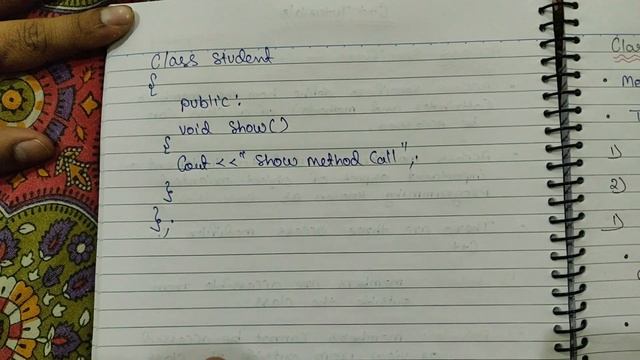 Class Student
{
public:
void Show()
{
Cout << "Show method Call";
}
};
Clas
• Me
• T
1)
2)
1)